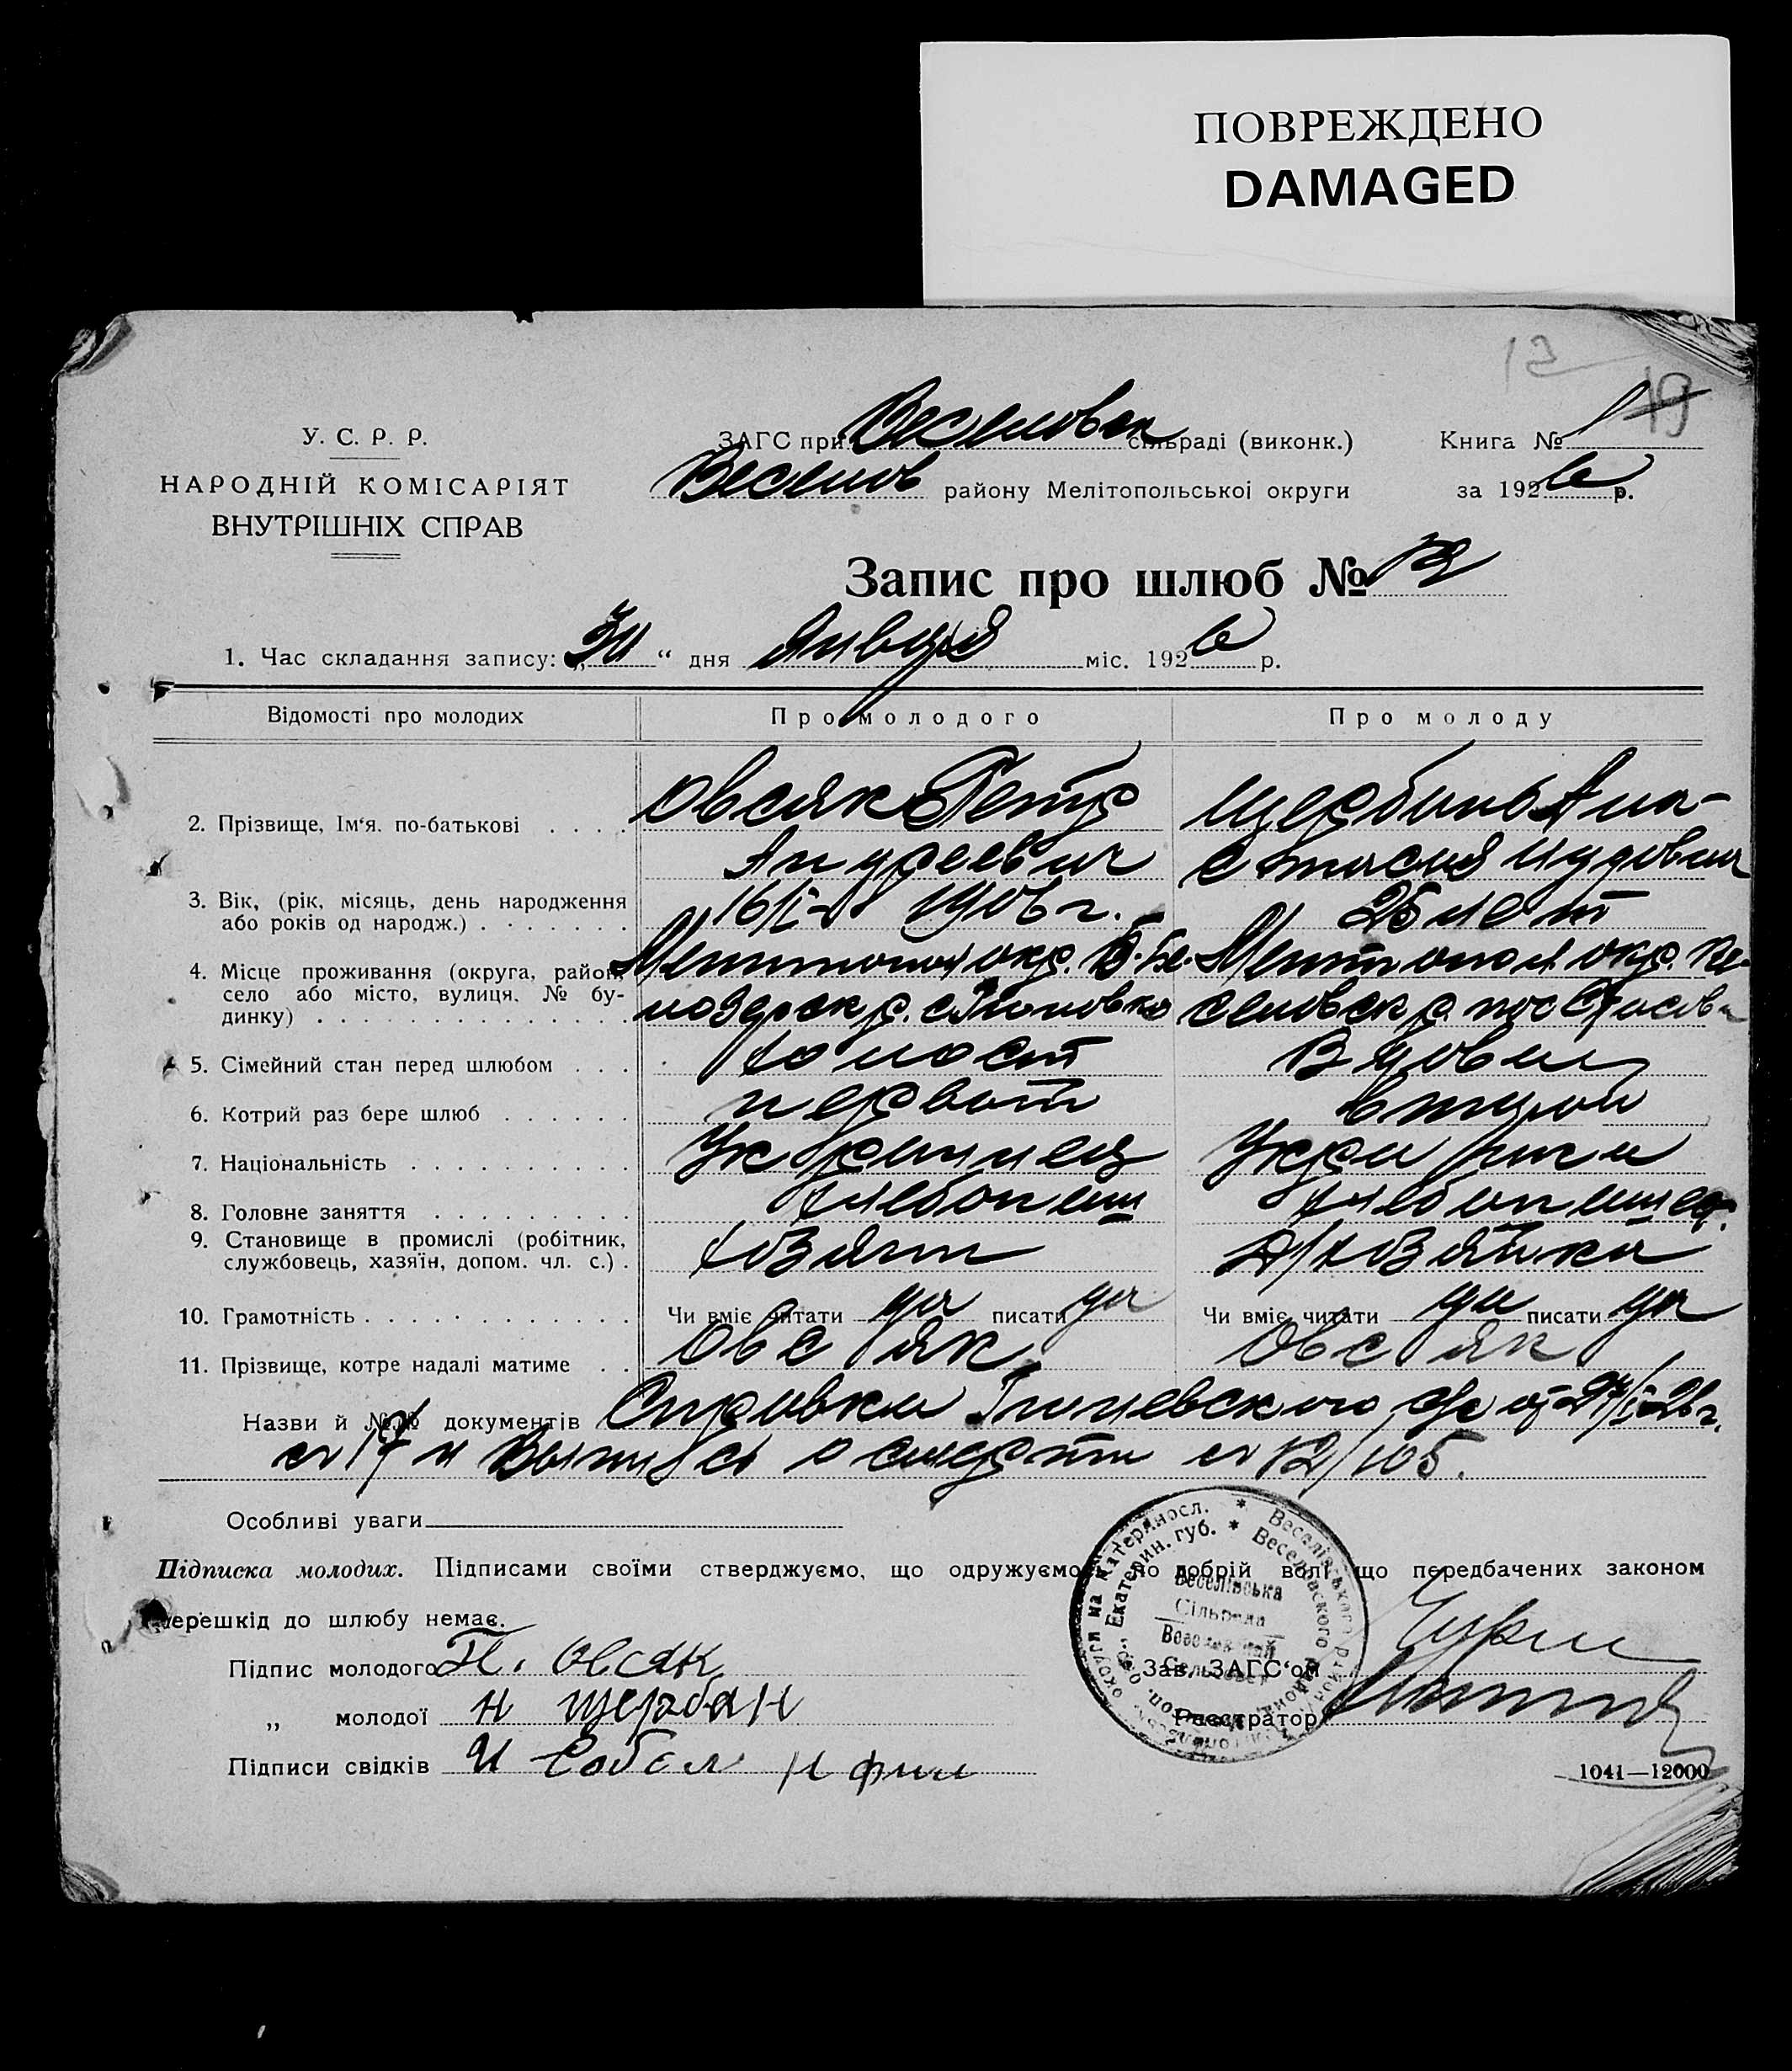 ПОВРЕЖДЕНО
DAMAGED
13
19
У. С. Р. Р.
НАРОДНІЙ КОМІСАРІЯТ
ВНУТРІШНІХ СПРАВ
ЗАГС при Веселовск сільраді (виконк.) Книга № 1
Веселов району Мелітопольської округи за 1926 р.
Запис про шлюб № 13
1. Час складання запису: „30“ дня Января міс. 1926 р.
Відомості про молодих Про молодого Про молоду
2. Прізвище, Ім‘я. по-батькові Овсяк Петр Щербань Ана-
Андреевич стасия
3. Вік, (рік, місяць, день народження 16/I- 1906 г. 25 лет
або років од народж.)
4. Місце проживання (округа, район, Мелитопол окр. Б.-Бе- Мелитопол окр. Ве-
село або місто, вулиця, № бу- лозерск р. с. селовск р. пос
динку)
5. Сімейний стан перед шлюбом холост Вдова
6. Котрий раз бере шлюб первый второй
7. Національність Украинец Украинка
8. Головне заняття хлебопаш хлебопашец.
9. Становище в промислі (робітник, хозяин Д/хозяйка
службовець, хазяїн, допом. чл. с.)
10. Грамотність Чи вміє читати да писати да Чи вміє читати да писати да
11. Прізвище, котре надалі матиме Овсяк Овсяк
Назви й №№ документів Справка с/с от 27/I-26 г.
и Выпись о смерти № 12/105.
Особливі уваги
Підписка молодих. Підписами своїми стверджуємо, що одружуємо по добрій волі що передбачених законом
перешкід до шлюбу немає.
Підпис молодого П. Овсяк
„ молодої Н Щербан
Підписи свідків И Собєл Н
Веселівська
Сільрада
Зав. ЗАГС‘ом
Реєстратор
1041—12000